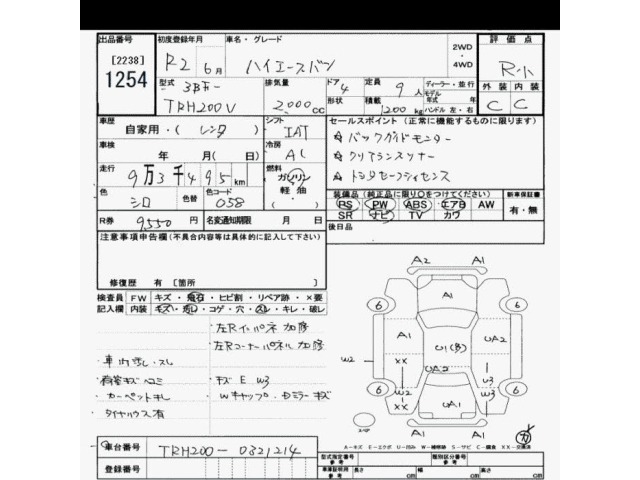 出品番号 初度登録年月 車名・グレード 2WD・4WD 評価点
[2238] R2 6月 ハイエースバン R-小
1254 型式 3BF- 排気量 ドア 4 定員 9人 ディーラー・並行 外装 内装
TRH200V 2000cc 形状 積載 1200kg モデル年式 年 ハンドル 左・右 C C
車歴 シフト セールスポイント (正常に機能するものに限ります)
自家用・( レンタ ) IAT ☆ バックガイドモニター
車検 年 月(日) 冷房 AC ☆ クリアランスソナー
走行 9万3千495km 燃料 ガソリン・軽油 ☆ トヨタセーフティセンス
色 シロ 色替 色コード 058 装備品 (純正品に限り○をつけてください) 新車保証書
PS PW ABS エアB AW 有・無
SR ナビ TV カワ
R券 9,550円 名変通知期限 月 日 後日品
注意事項申告欄(不具合内容等は具体的に記入して下さい)
修復歴 有 [箇所 ]
検査員 FW キズ・飛石・ヒビ割・リペア跡・×要
記入欄 内装 キズ・汚し・コゲ・穴・スレ・キレ・破レ
左Rインパネ 加修
左Rコーナーパネル 加修
車内汚し・スレ
荷室キズ ヘコミ ・キズ E W3
・カーペットキレ Wキャップ・Dミラーキズ
タイヤハウス有
A2 A1
A1
6 6
A1 U1(B) UA2
W2 XX UA2
W2 U3
6 6
XX UA1 W3
A1
A-キズ E-エクボ U-凹み W-補修跡 S-サビ C-腐食 XX-交換済
車台番号 TRH200-0321214
型式指定番号 参考 類別区分番号 参考
登録番号 車庫証明用 参考 長さ cm 幅 cm 高さ cm